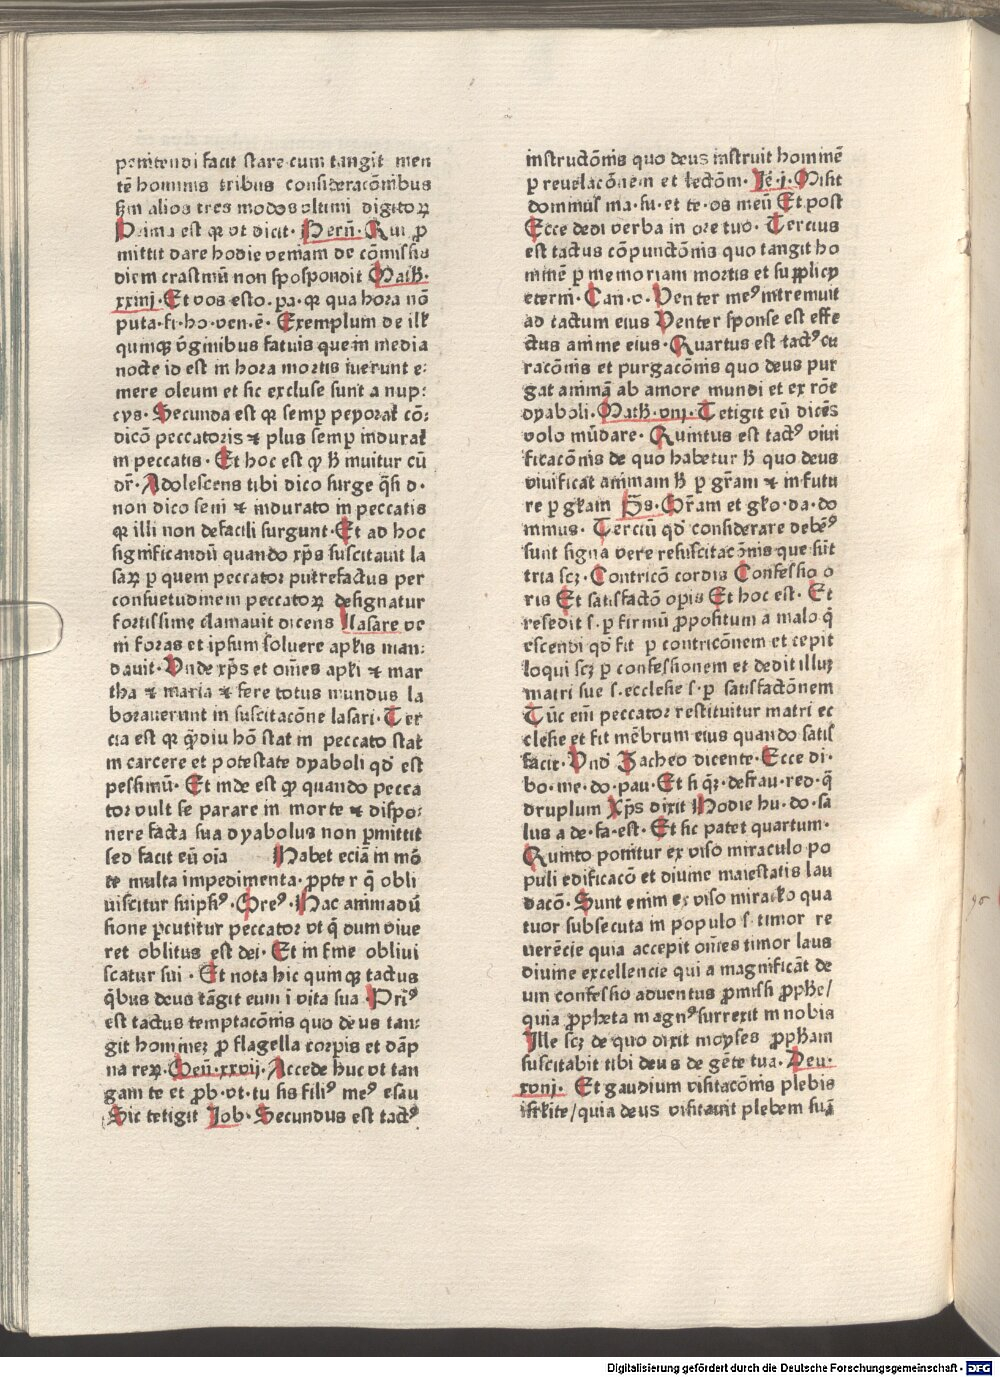 penitendi facit stare cum tangit men
tē hominis tribus consideracōnibus
ẜm alios tres modos vltimi digitoꝝ
Prima est qꝛ vt dicit· Bern̄· Qui ꝓ
mittit dare hodie veniam de cōmissis
diem crastinū non spospondit Math·
xxiiij· Et vos esto· pa· qꝛ qua hora nō
puta· fi· ho· ven· ē· Exemplum de ill'
quinqꝫ v̄ginibus fatuis que in media
nocte id est in hora mortis iuerunt e-
mere oleum et sic excluse sunt a nup-
cys· Secunda est qꝛ semꝑ peyorat cō-
dicō peccatoris ⁊ plus semꝑ indurat
in peccatis· Et hoc est qꝫ h̄ innuitur cū
dr̄· Adolescens tibi dico surge q̄si d·
non dico seni ⁊ indurato in peccatis
qꝛ illi non defacili surgunt· Et ad hoc
significandū quando xp̄s suscitauit la
saꝝ ꝑ quem peccator putrefactus per
consuetudinem peccatoꝝ designatur
fortissime clamauit dicens Llasare ve
ni foras et ipsum soluere apl'is man-
dauit· Vnde xp̄s et om̄es apl'i ⁊ mar
tha ⁊ maria ⁊ fere totus mundus la
borauerunt in suscitacōne lasari· Ter
cia est qꝛ q̄diu hō stat in peccato stat
in carcere et potestate dyaboli qd̄ est
pessimū· Et inde est qꝫ quando pecca
tor vult se parare in morte ⁊ dispo-
nere facta sua dyabolus non ꝑmittit
sed facit eū oīa Habet eciā in mō
te multa impedimenta· ꝓpter q̄ obli
uiscitur suiipsiꝰ· Greꝰ· Hac animadū
sione ꝑcutitur peccator vt q̄ dum viue
ret oblitus est dei· Et in fine obliui
scatur sui· Et nota hic quinqꝫ tactus
q̄bus deus tāgit eum ī vita sua· Priꝰ
est tactus temptacōnis quo deus tan-
git hominēꝫ ꝑ flagella corpis et dāp
na reꝝ· Gen̄· xxvij· Accede huc vt tan
gam te et ꝓb· vt· tu sis filiꝰ meꝰ esau
Sic tetigit Job· Secundus est tactꝰ
instructōnis quo deus instruit hominē
ꝑ reuelacōnem et lectōm· Je· j· Misit
dominus ma· su· et te· os meū Et post
Ecce dedi verba in ore tuo· Tercius
est tactus cōpunctōnis quo tangit ho
minē ꝑ memoriam mortis et supplicy
eterni· Can· v· Venter meꝰ intremuit
ad tactum eius Venter sponse est effe
ctus anime eius· Quartus est tactꝰ cu
racōnis et purgacōnis quo deus pur
gat animā ab amore mundi et ex rōe
dyaboli· Math· viij· Tetigit eū dicēs
volo mūdare· Quintus est tactꝰ viui
ficacōnis de quo habetur h̄ quo deus
viuificat animam h̄ ꝑ gr̄am ⁊ in futu
re ꝑ gl'iam P̄s· Gr̄am et gl'o· da· do
minus· Terciū qd̄ considerare debēꝰ
sunt signa vere resuscitacōnis que sūt
tria scꝫ· Contricō cordis Confessio o
ris Et satisfactō opis Et hoc est· Et
resedit s· ꝑ firmū ꝓpositum a malo q̄
escendi qd̄ fit ꝑ contricōnem et cepit
loqui scꝫ ꝑ confessionem et dedit illuꝫ
matri sue s· ecclesie s· ꝑ satisfactōnem
Tūc eni peccator restituitur matri ec
clesie et fit mēbrum eius quando satis
facit· Vnd̄ Zacheo dicente· Ecce di·
bo· me· do· pau· Et si qꝫ· defrau· red· q̄
druplum Xp̄s dixit Hodie hu· do· sa
lus a de· fa· est· Et sic patet quartum·
Quinto ponitur ex viso miraculo po
puli edificacō et diuine maiestatis lau
dacō· Sunt enim ex viso mirac̄lo qua
tuor subsecuta in populo s· timor re
uerēcie quia accepit om̄es timor laus
diuine excellencie qui a magnificāt de
um confessio aduentus ꝓmissi ꝓph̄e/
quia ꝓpheta magnꝰ surrexit in nobis
Jlle scꝫ de quo dixit moyses ꝓph̄am
suscitabit tibi deus de gēte tua· Deu·
xviij· Et gaudium visitacōnis plebis
isrl'ite/quia deus visitauit plebem suā
Digitalisierung gefördert durch die Deutsche Forschungsgemeinschaft - DFG